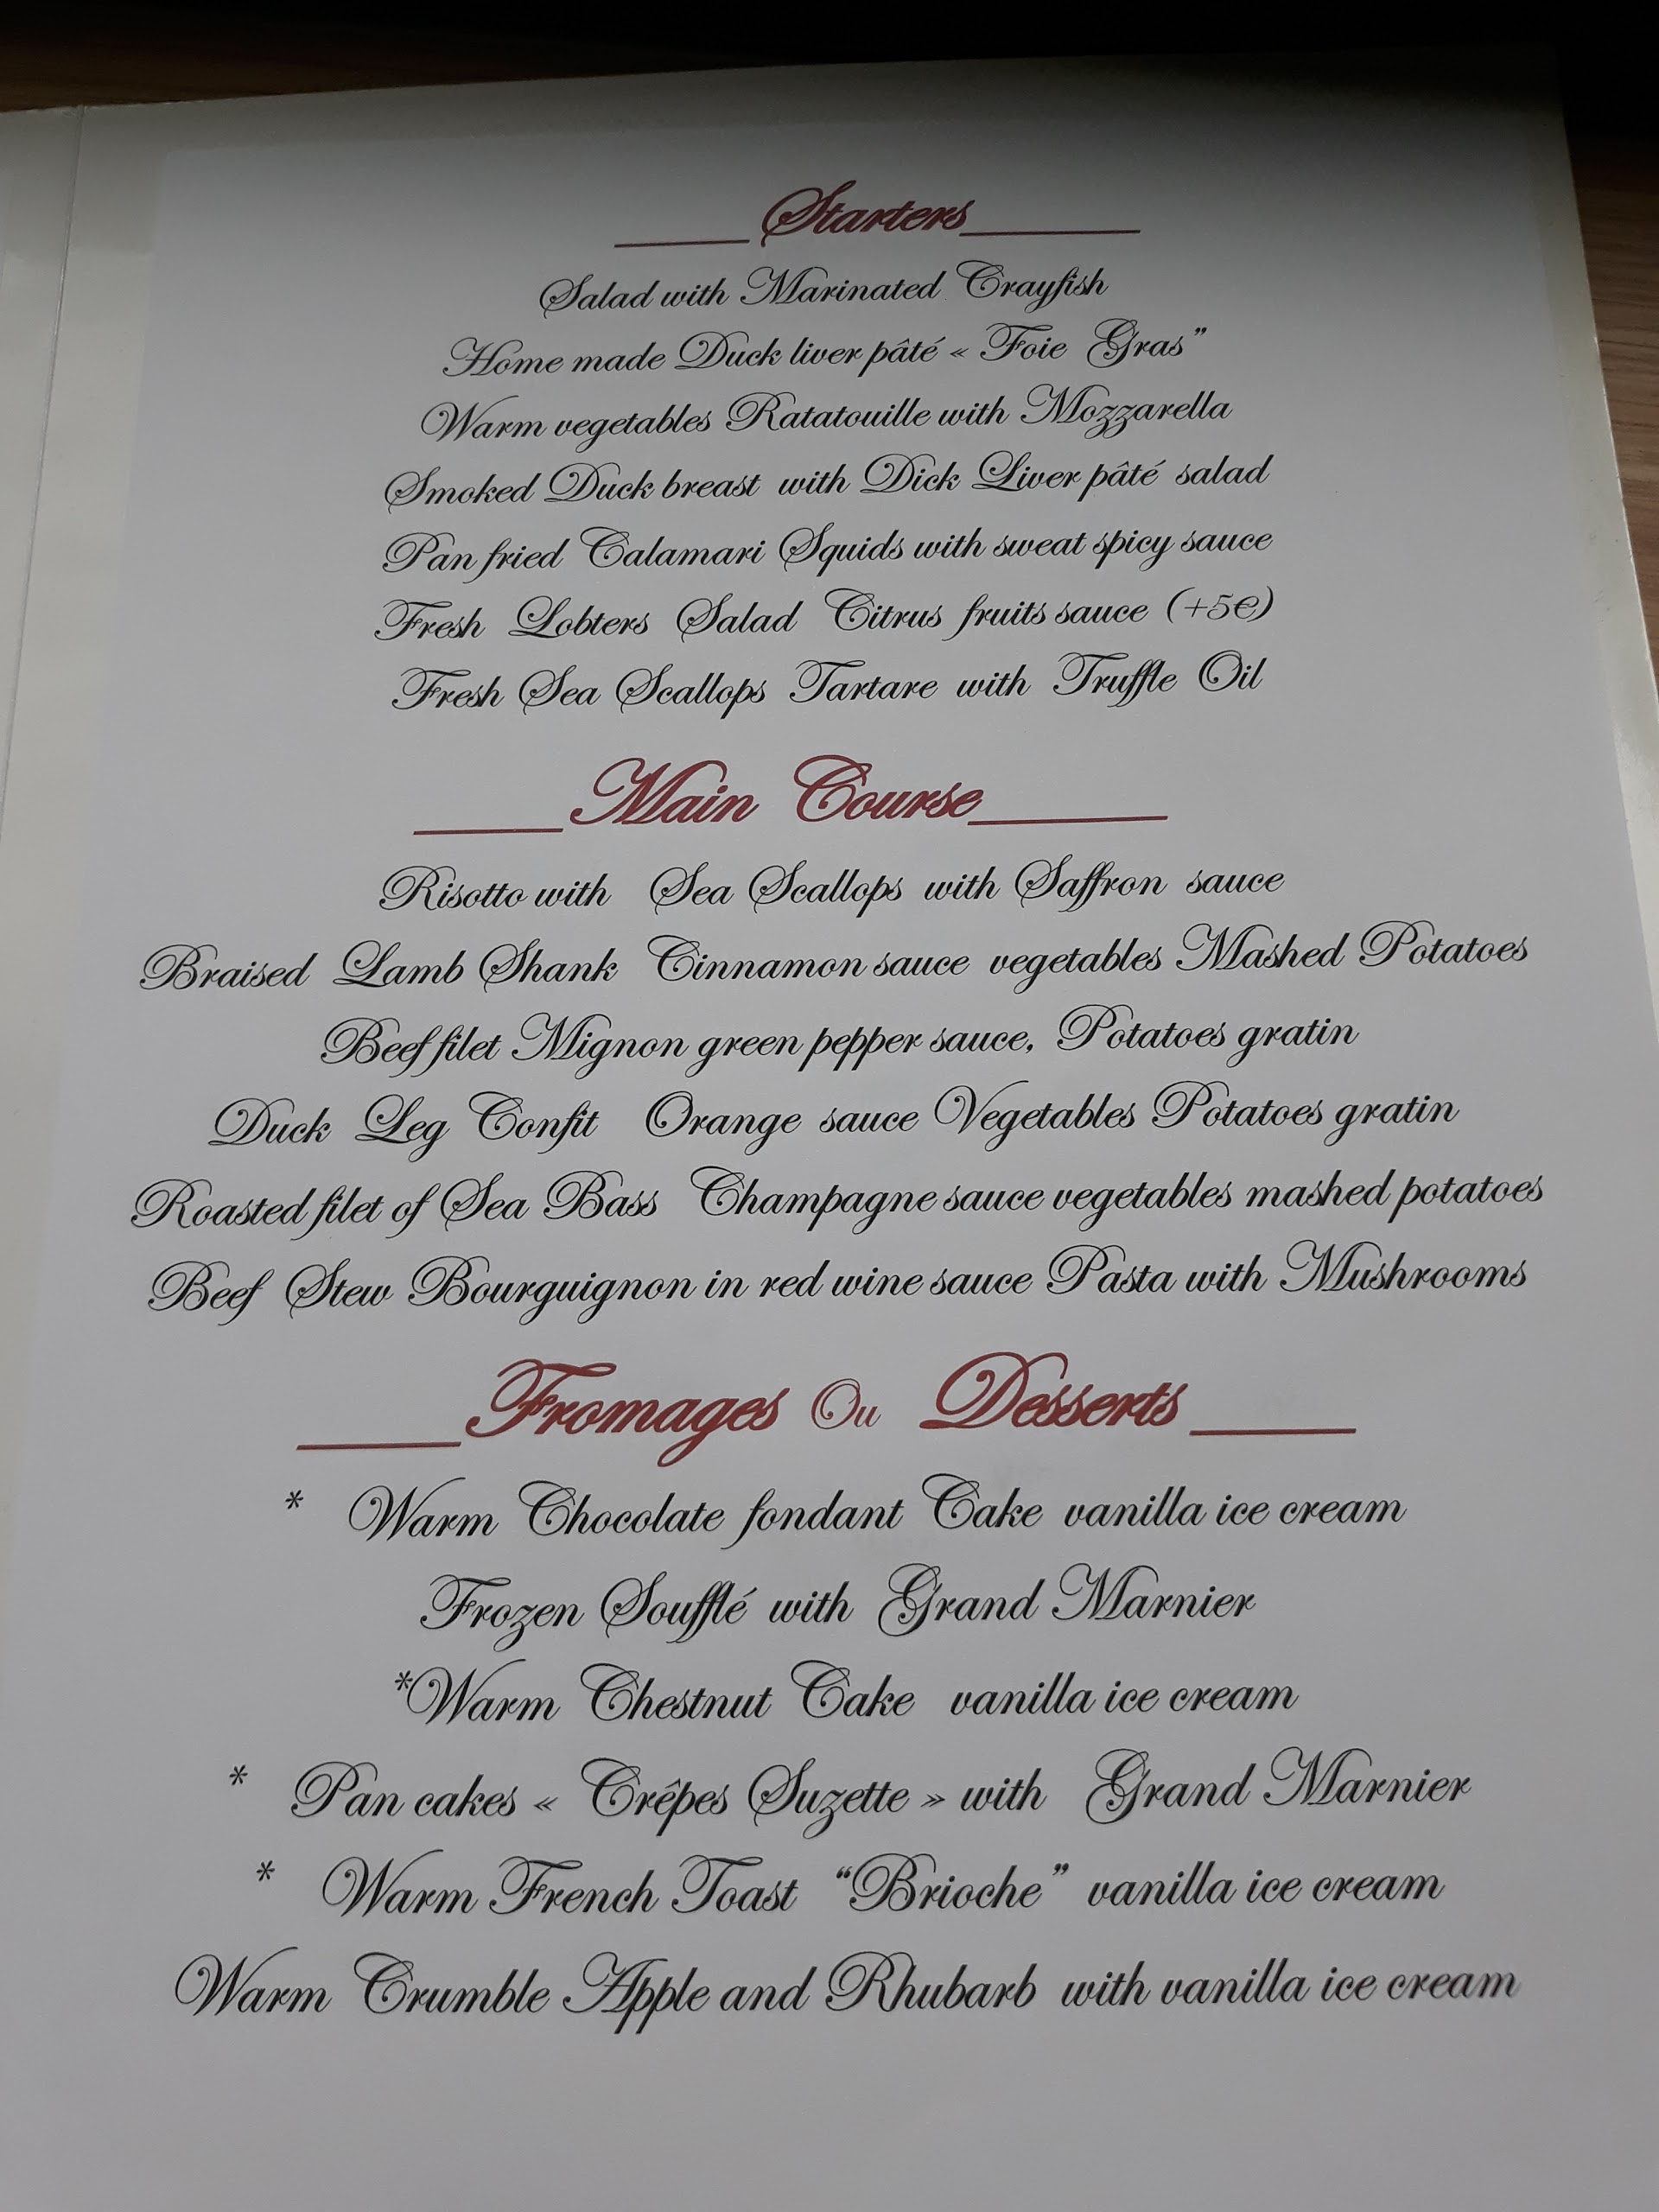 Starters
Salad with Marinated Crayfish
Home made Duck liver pâté « Foie Gras”
Warm vegetables Ratatouille with Mozzarella
Smoked Duck breast with Dick Liver pâté salad
Pan fried Calamari Squids with sweat spicy sauce
Fresh Lobters Salad Citrus fruits sauce (+5€)
Fresh Sea Scallops Tartare with Truffle Oil
Main Course
Risotto with Sea Scallops with Saffron sauce
Braised Lamb Shank Cinnamon sauce vegetables Mashed Potatoes
Beef filet Mignon green pepper sauce, Potatoes gratin
Duck Leg Confit Orange sauce Vegetables Potatoes gratin
Roasted filet of Sea Bass Champagne sauce vegetables mashed potatoes
Beef Stew Bourguignon in red wine sauce Pasta with Mushrooms
Fromages Ou Desserts
* Warm Chocolate fondant Cake vanilla ice cream
Frozen Soufflé with Grand Marnier
*Warm Chestnut Cake vanilla ice cream
* Pan cakes « Crêpes Suzette » with Grand Marnier
* Warm French Toast “Brioche” vanilla ice cream
Warm Crumble Apple and Rhubarb with vanilla ice cream